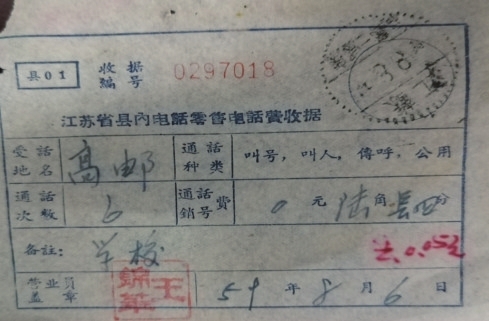 县01 收据编号 0297018
江苏省县内电話零售电話費收据
受話地名 高邮 通話种类 叫号，叫人，傳呼，公用
通話次数 6 通話費銷号 0元 陆角 分
备註： 学校
营业员盖章 王錦華 59年8月6日